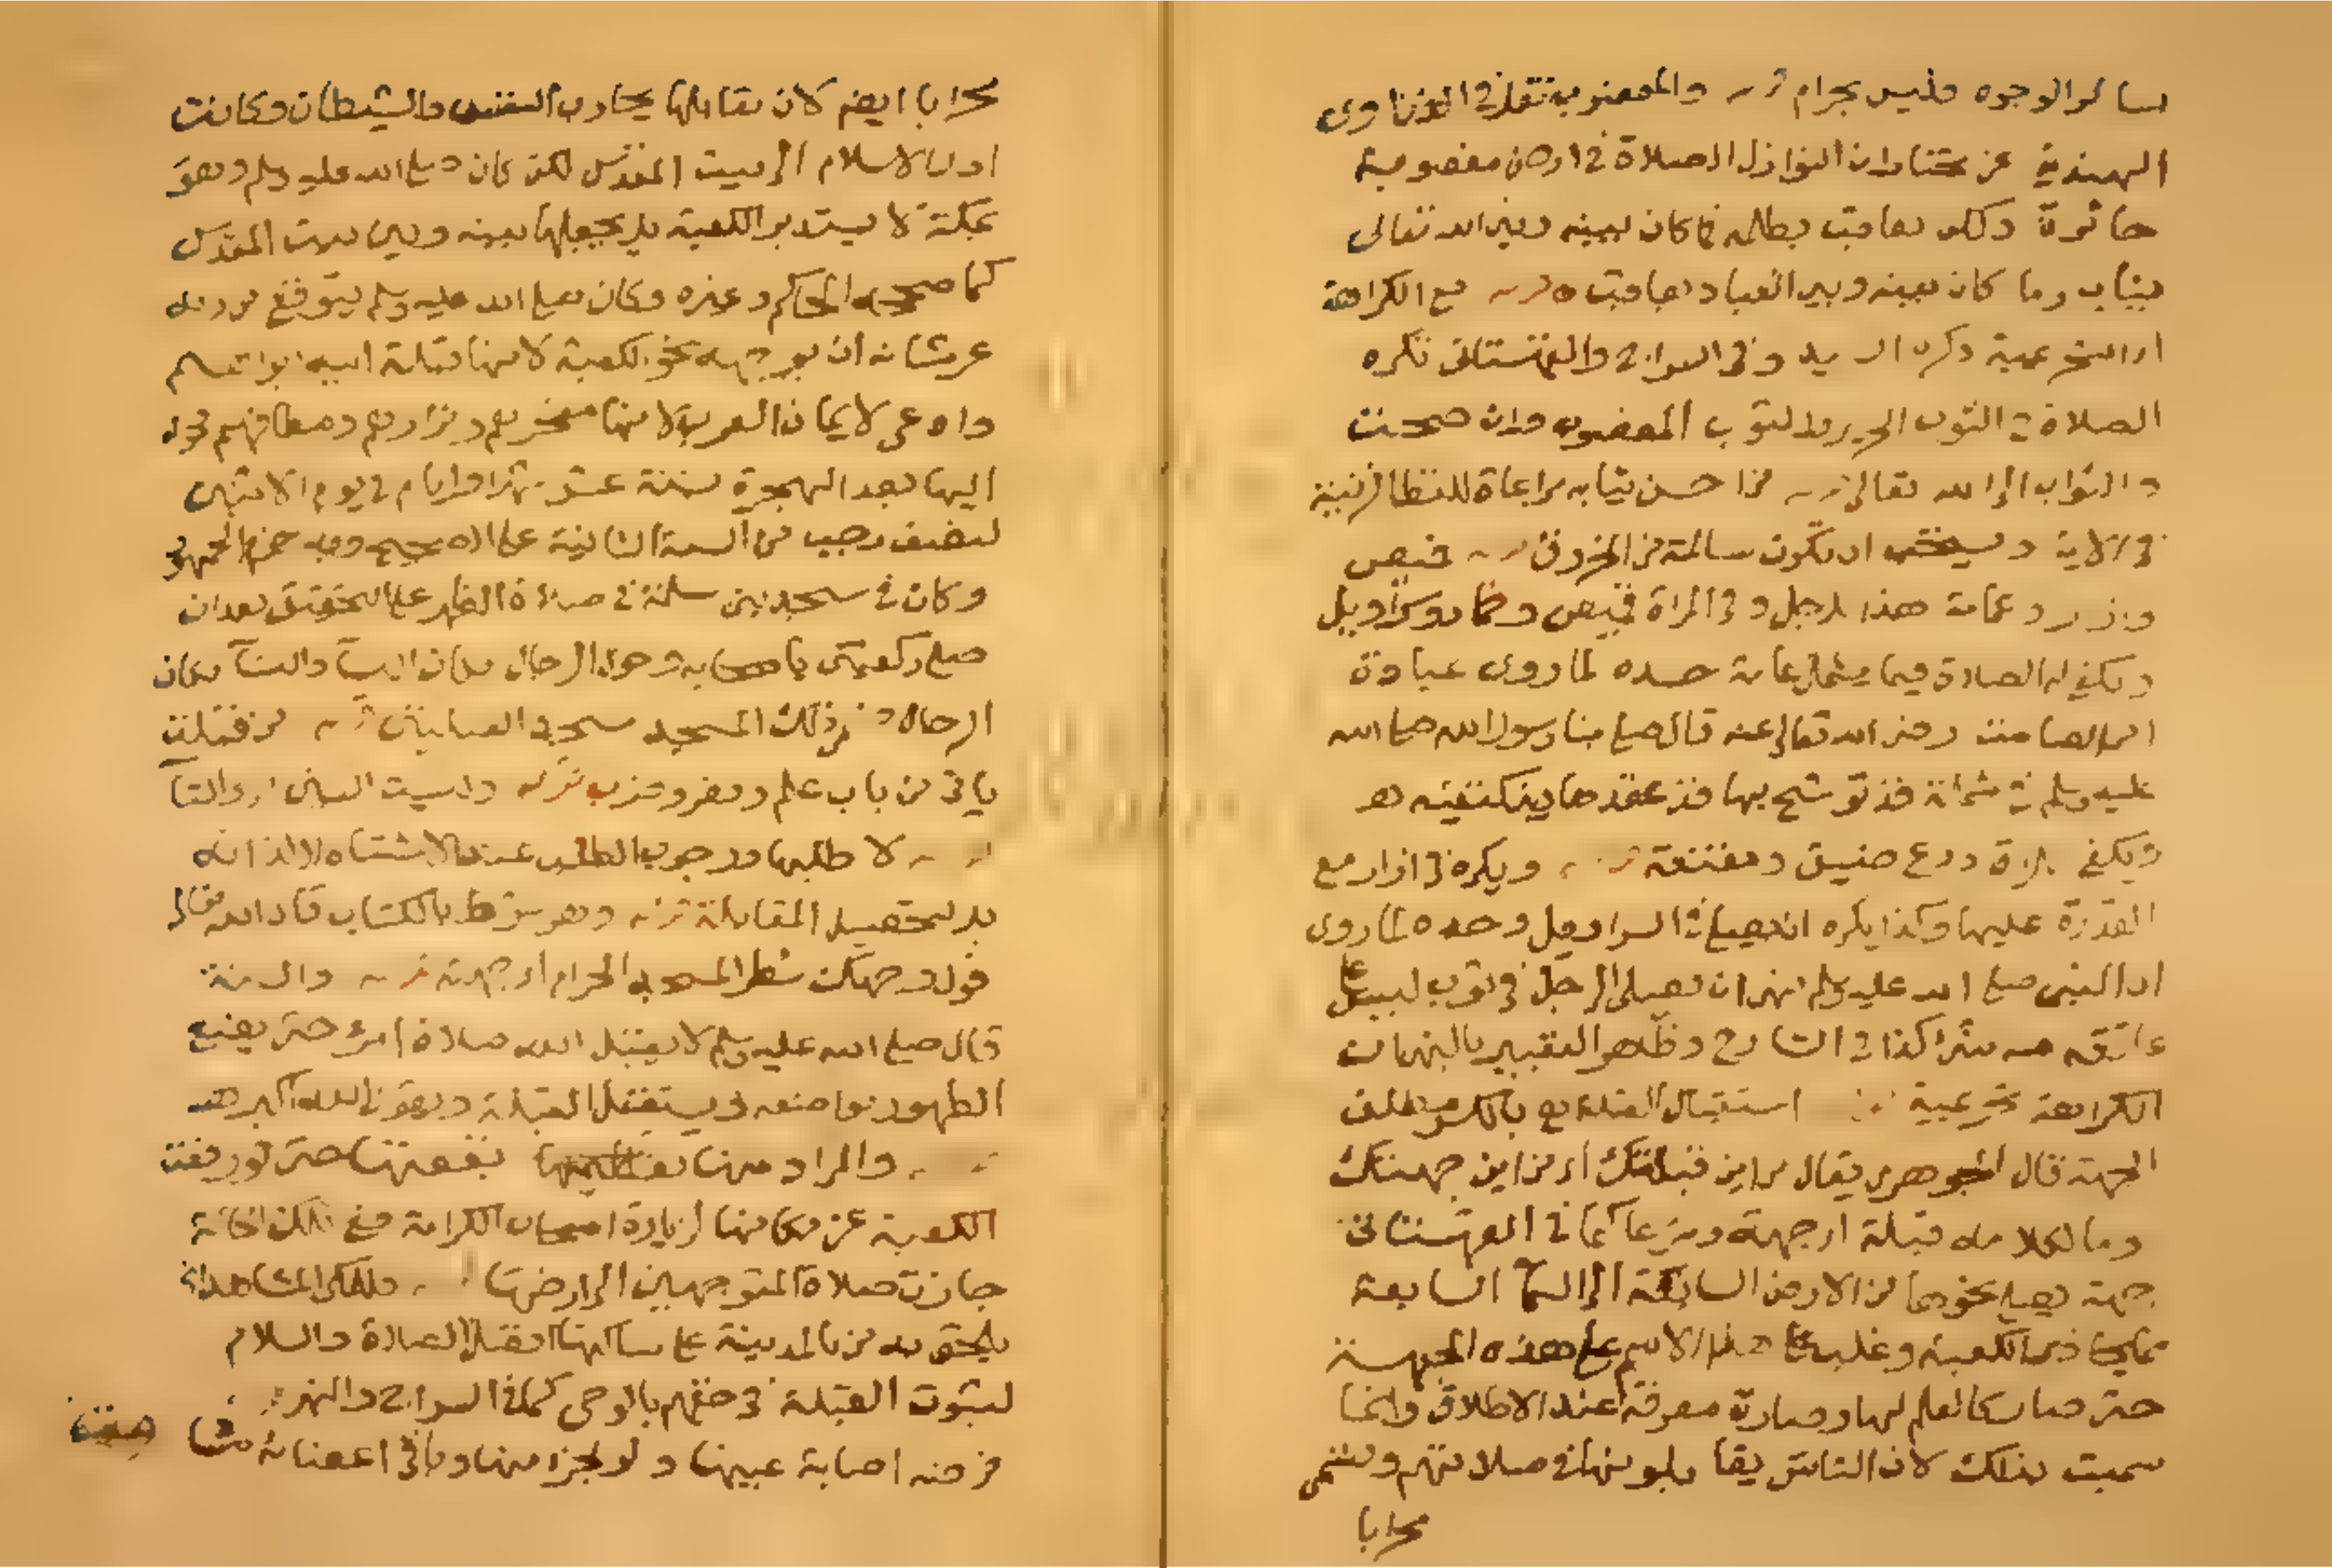 سائر الوجوه فليس بحرام والمغصوب نقل في الفتاوى
الهندية عن مختارات النوازل الصلاة في ارض مغصوبة
جائزة ولكن يعاقب بظلمه فما كان بينه وبين الله تعالى
يثاب وما كان بينه وبين العباد يعاقب مع الكراهة
اي التحريمية ذكره السيد وفي السراج والقهستاني تكره
الصلاة في الثوب الحرير والثوب المغصوب وان صحت
والثواب الى الله تعالى من احسن ثيابه مراعاة للفظ الزينة
في الاية ويستحب ان تكون سالمة من الخروق قميص
وازار وعمامة هذا للرجل وفي المراة قميص وخمار وسراويل
ويكفي له الصلاة فيما يشمل عامة جسده لما روى عبادة
ابن الصامت رضي الله تعالى عنه قال صلى بنا رسول الله صلى الله
عليه وسلم في شملة قد توشح بها قد عقدها بين كتفيه
ويكفي للمراة درع صفيق ومقنعة ويكره في ازار مع
القدرة عليها وكذا يكره ان يصلي في السراويل وحده لما روى
ان النبي صلى الله عليه وسلم نهى ان يصلي الرجل في ثوب ليس على
عاتقه منه شئ كذا في الشارح وظاهر التعبير بالنهي ان
الكراهة تحريمية استقبال القبلة هي بالكسر مطلق
الجهة قال الجوهري يقال من اين قبلتك اي من اين جهتك
وما لكلامه قبلة اي جهة وشرعا كما في القهستاني
جهة يصلى نحوها من الارض السابعة الى السماء السابعة
مما يحاذي الكعبة وغلب هذا الاسم على هذه الجهة
حتى صار كالعلم لها وصارت معرفة عند الاطلاق وانما
سميت بذلك لان الناس يقابلونها في صلاتهم وتسمى
محرابا
محرابا ايضا لان مقابلها يحارب النفس والشيطان وكانت
اول الاسلام الى بيت المقدس لكن كان صلى الله عليه وسلم وهو
بمكة لا يستدبر الكعبة بل يجعلها بينه وبين بيت المقدس
كما صححه الحاكم وغيره وكان صلى الله عليه وسلم يتوقع من ربه
عز شانه ان يوجهه نحو الكعبة لانها قبلة ابيه ابراهيم
وادعى لايمان العرب لانها مفخرهم ومزارهم ومطافهم فحول
اليها بعد الهجرة بستة عشر شهرا وايام في يوم الاثنين
لنصف رجب من السنة الثانية على الصحيح وبه جزم الجمهور
وكان في مسجد بني سلمة في صلاة الظهر على التحقيق بعد ان
صلى ركعتين باصحابه وحول الرجال مكان النساء والنساء مكان
الرجال ذلك المسجد مسجد القبلتين من قبلت
ياتي من باب علم ونصر وضرب وليست السين اي والتاء
لا طلبها ووجوب الطلب عند الاشتباه لا لذاته
بل لتحصيل المقابلة وهو شرط بالكتاب قال الله تعالى
فول وجهك شطر المسجد الحرام اي جهته والسنة
قال صلى الله عليه وسلم لا يقبل الله صلاة امرئ حتى يضع
الطهور مواضعه ويستقبل القبلة ويقول الله اكبر
والمراد منها بقعتها حتى لو رفعت
الكعبة عن مكانها لزيارة اصحاب الكرامة ففي تلك الحالة
جازت صلاة المتوجهين الى ارضها فللمكي المشاهد
يلحق به من بالمدينة على ساكنها افضل الصلاة والسلام
لثبوت القبلة في حقهم بالوحي كما في السراج والنهر
فرضه اصابة عينها ولو لجزء منها وباقي اعضائه